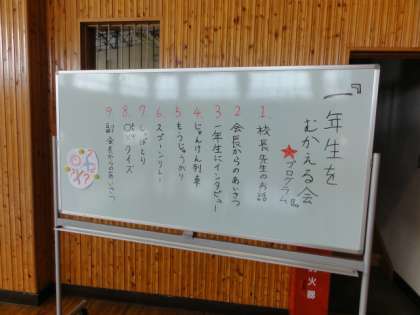 『一年生を
むかえる会
★プログラム』
1. 校長先生のお話
2 会長からのあいさつ
3 一年生にインタビュー
4. じゃんけん列車
5 もうじゅうがり
6. スプーンリレー
7. しっぽとり
8. ○×クイズ
9 副会長からのあいさつ
火器